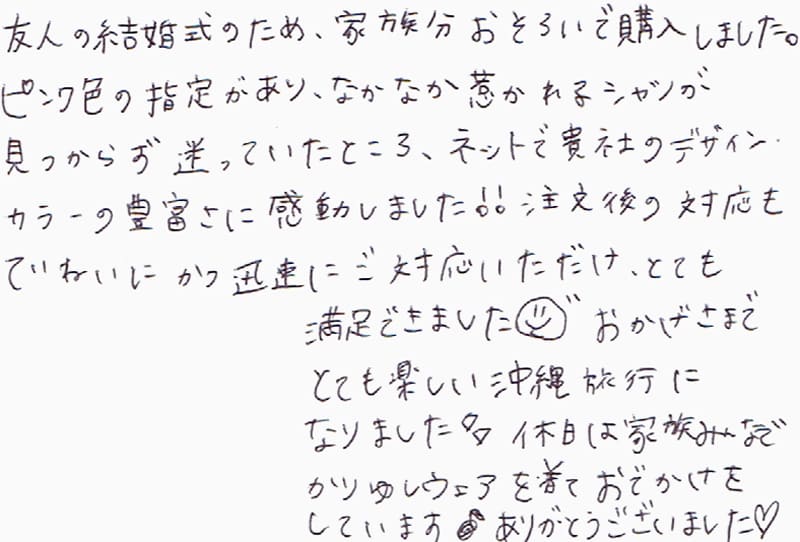 友人の結婚式のため、家族分おそろいで購入しました。
ピンク色の指定があり、なかなか惹かれるシャツが
見つからず迷っていたところ、ネットで貴社のデザイン・
カラーの豊富さに感動しました!! 注文後の対応も
ていねいにかつ迅速にご対応いただけ、とても
満足できました☺ おかげさまで
とても楽しい沖縄旅行に
なりました 休日は家族みんなで
かりゆしウェアを着ておでかけを
しています♪ ありがとうございました♡